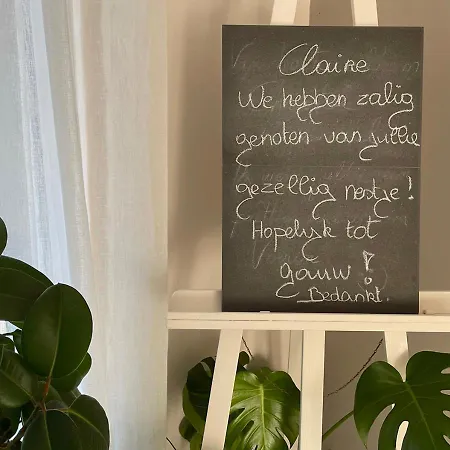 Claire
We hebben zalig
genoten van jullie
gezellig nestje!
Hopelijk tot
gauw!
Bedankt.